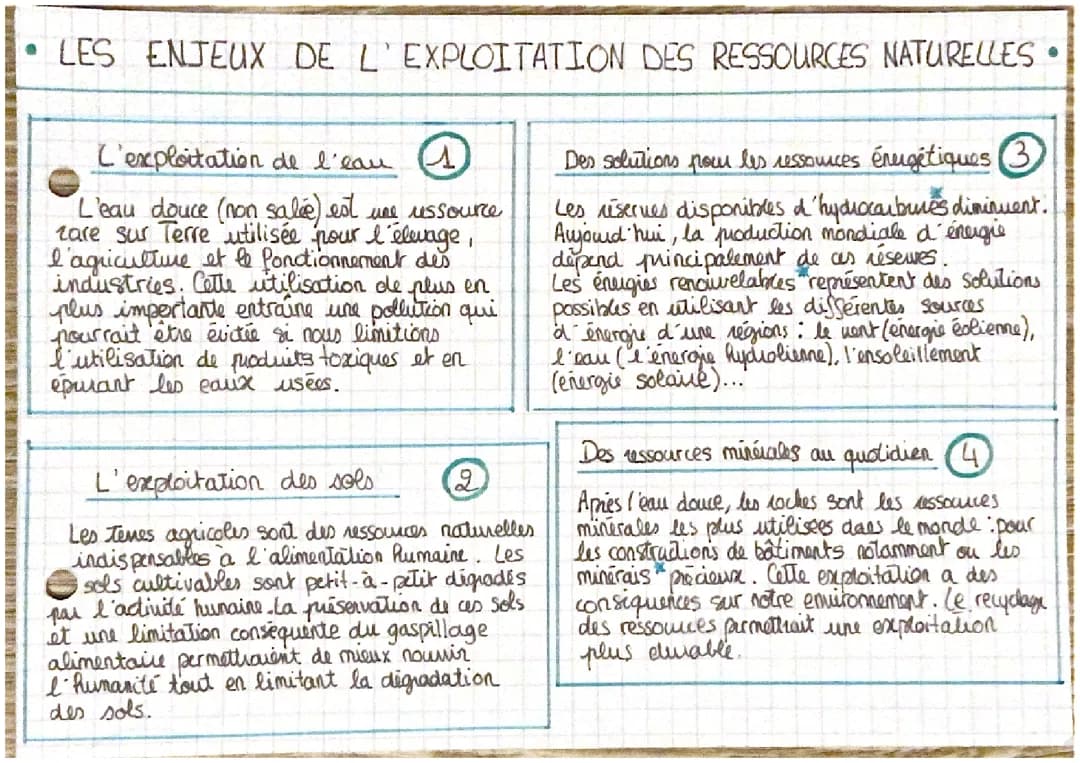 • LES ENJEUX DE L'EXPLOITATION DES RESSOURCES NATURELLES •
L'exploitation de l'eau 1
L'eau douce (non salée) est une ressource
rare sur Terre utilisée pour l'élevage,
l'agriculture et le fonctionnement des
industries. Cette utilisation de plus en
plus importante entraîne une pollution qui
pourrait être évitée si nous limitions
l'utilisation de produits toxiques et en
épurant les eaux usées.
L'exploitation des sols 2
Les Terres agricoles sont des ressources naturelles
indispensables à l'alimentation humaine. Les
sols cultivables sont petit-à-petit dégradés
par l'activité humaine. La préservation de ces sols
et une limitation conséquente du gaspillage
alimentaire permettraient de mieux nourrir
l'humanité tout en limitant la dégradation
des sols.
Des solutions pour les ressources énergétiques 3
Les réserves disponibles d'hydrocarbures* diminuent.
Aujourd'hui, la production mondiale d'énergie
dépend principalement de ces réserves.
Les énergies renouvelables* représentent des solutions
possibles en utilisant les différentes sources
d'énergie d'une régions : le vent (énergie éolienne),
l'eau (l'énergie hydrolienne), l'ensoleillement
(énergie solaire)...
Des ressources minérales au quotidien 4
Après l'eau douce, les roches sont les ressources
minérales les plus utilisées dans le monde : pour
les constructions de bâtiments notamment ou les
minérais* précieux. Cette exploitation a des
conséquences sur notre environnement. Le recyclage
des ressources permettrait une exploitation
plus durable.